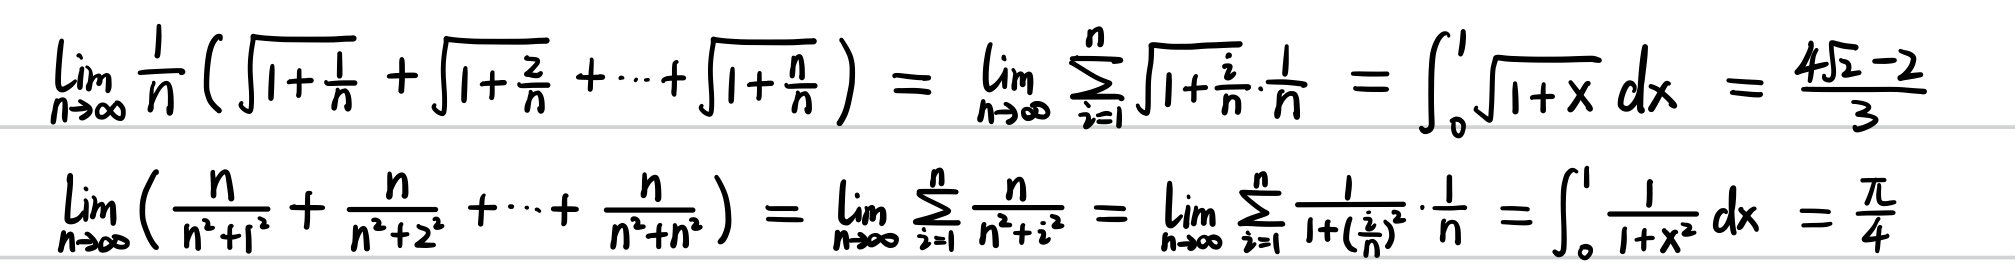 lim_{n→∞} 1/n (√(1+1/n) + √(1+2/n) + ··· + √(1+n/n)) = lim_{n→∞} ∑_{i=1}^{n} √(1+i/n) · 1/n = ∫_0^1 √(1+x) dx = (4√2-2)/3
lim_{n→∞} (n/(n²+1²) + n/(n²+2²) + ··· + n/(n²+n²)) = lim_{n→∞} ∑_{i=1}^{n} n/(n²+i²) = lim_{n→∞} ∑_{i=1}^{n} 1/(1+(i/n)²) · 1/n = ∫_0^1 1/(1+x²) dx = π/4